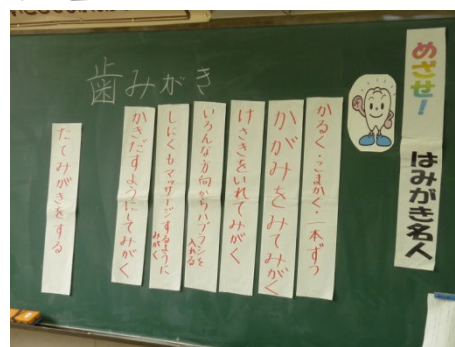 めざせ！ はみがき名人
歯みがき
かるく・こまかく・一本ずつ
かがみをみてみがく
けさきをいれてみがく
いろんな方向からハブラシを
入れる
しにくもマッサージするように
みがく
かきだすようにしてみがく
たてみがきをする